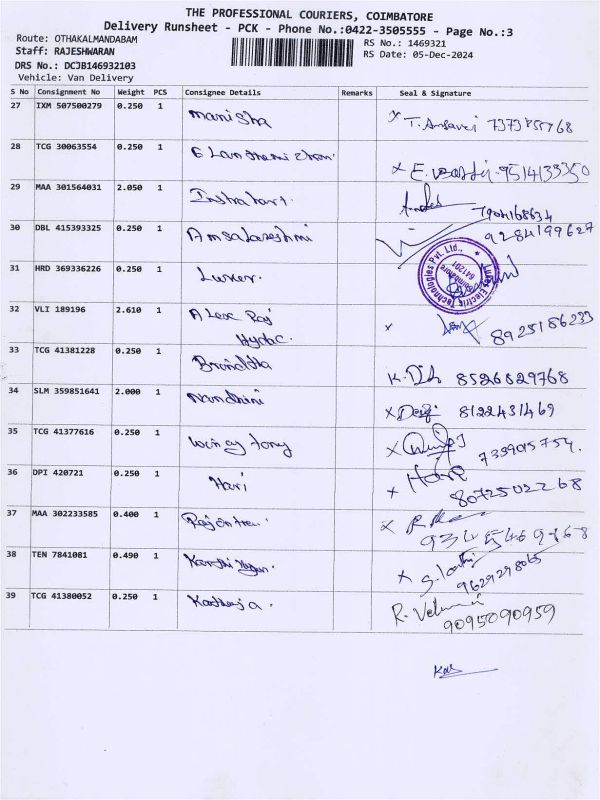 THE PROFESSIONAL COURIERS, COIMBATORE
Delivery Runsheet - PCK - Phone No.:0422-3505555 - Page No.:3
Route: OTHAKALMANDABAM
RS No.: 1469321
Staff: RAJESHWARAN
RS Date: 05-Dec-2024
DRS No.: DCJB146932103
Vehicle: Van Delivery
S No Consignment No Weight PCS Consignee Details Remarks Seal & Signature
27 IXM 507500279 0.250 1 Manisha
28 TCG 30063554 0.250 1
29 MAA 301564031 2.050 1
7904168634
30 DBL 415393325 0.250 1
9284199627
31 HRD 369336226 0.250 1 Luxer.
Luxer Electric Technologies Pvt. Ltd., Coimbatore 641201
32 VLI 189196 2.610 1 Alex Raj
Hydac. 8925186233
33 TCG 41381228 0.250 1 Brindha
8526829768
34 SLM 359851641 2.000 1 Nandhini 8122431469
35 TCG 41377616 0.250 1 Wincy tony
7339015754.
36 DPI 420721 0.250 1 Hari Hari
8072502268
37 MAA 302233585 0.400 1
38 TEN 7841081 0.490 1
9629298065
39 TCG 41380052 0.250 1
9095090959